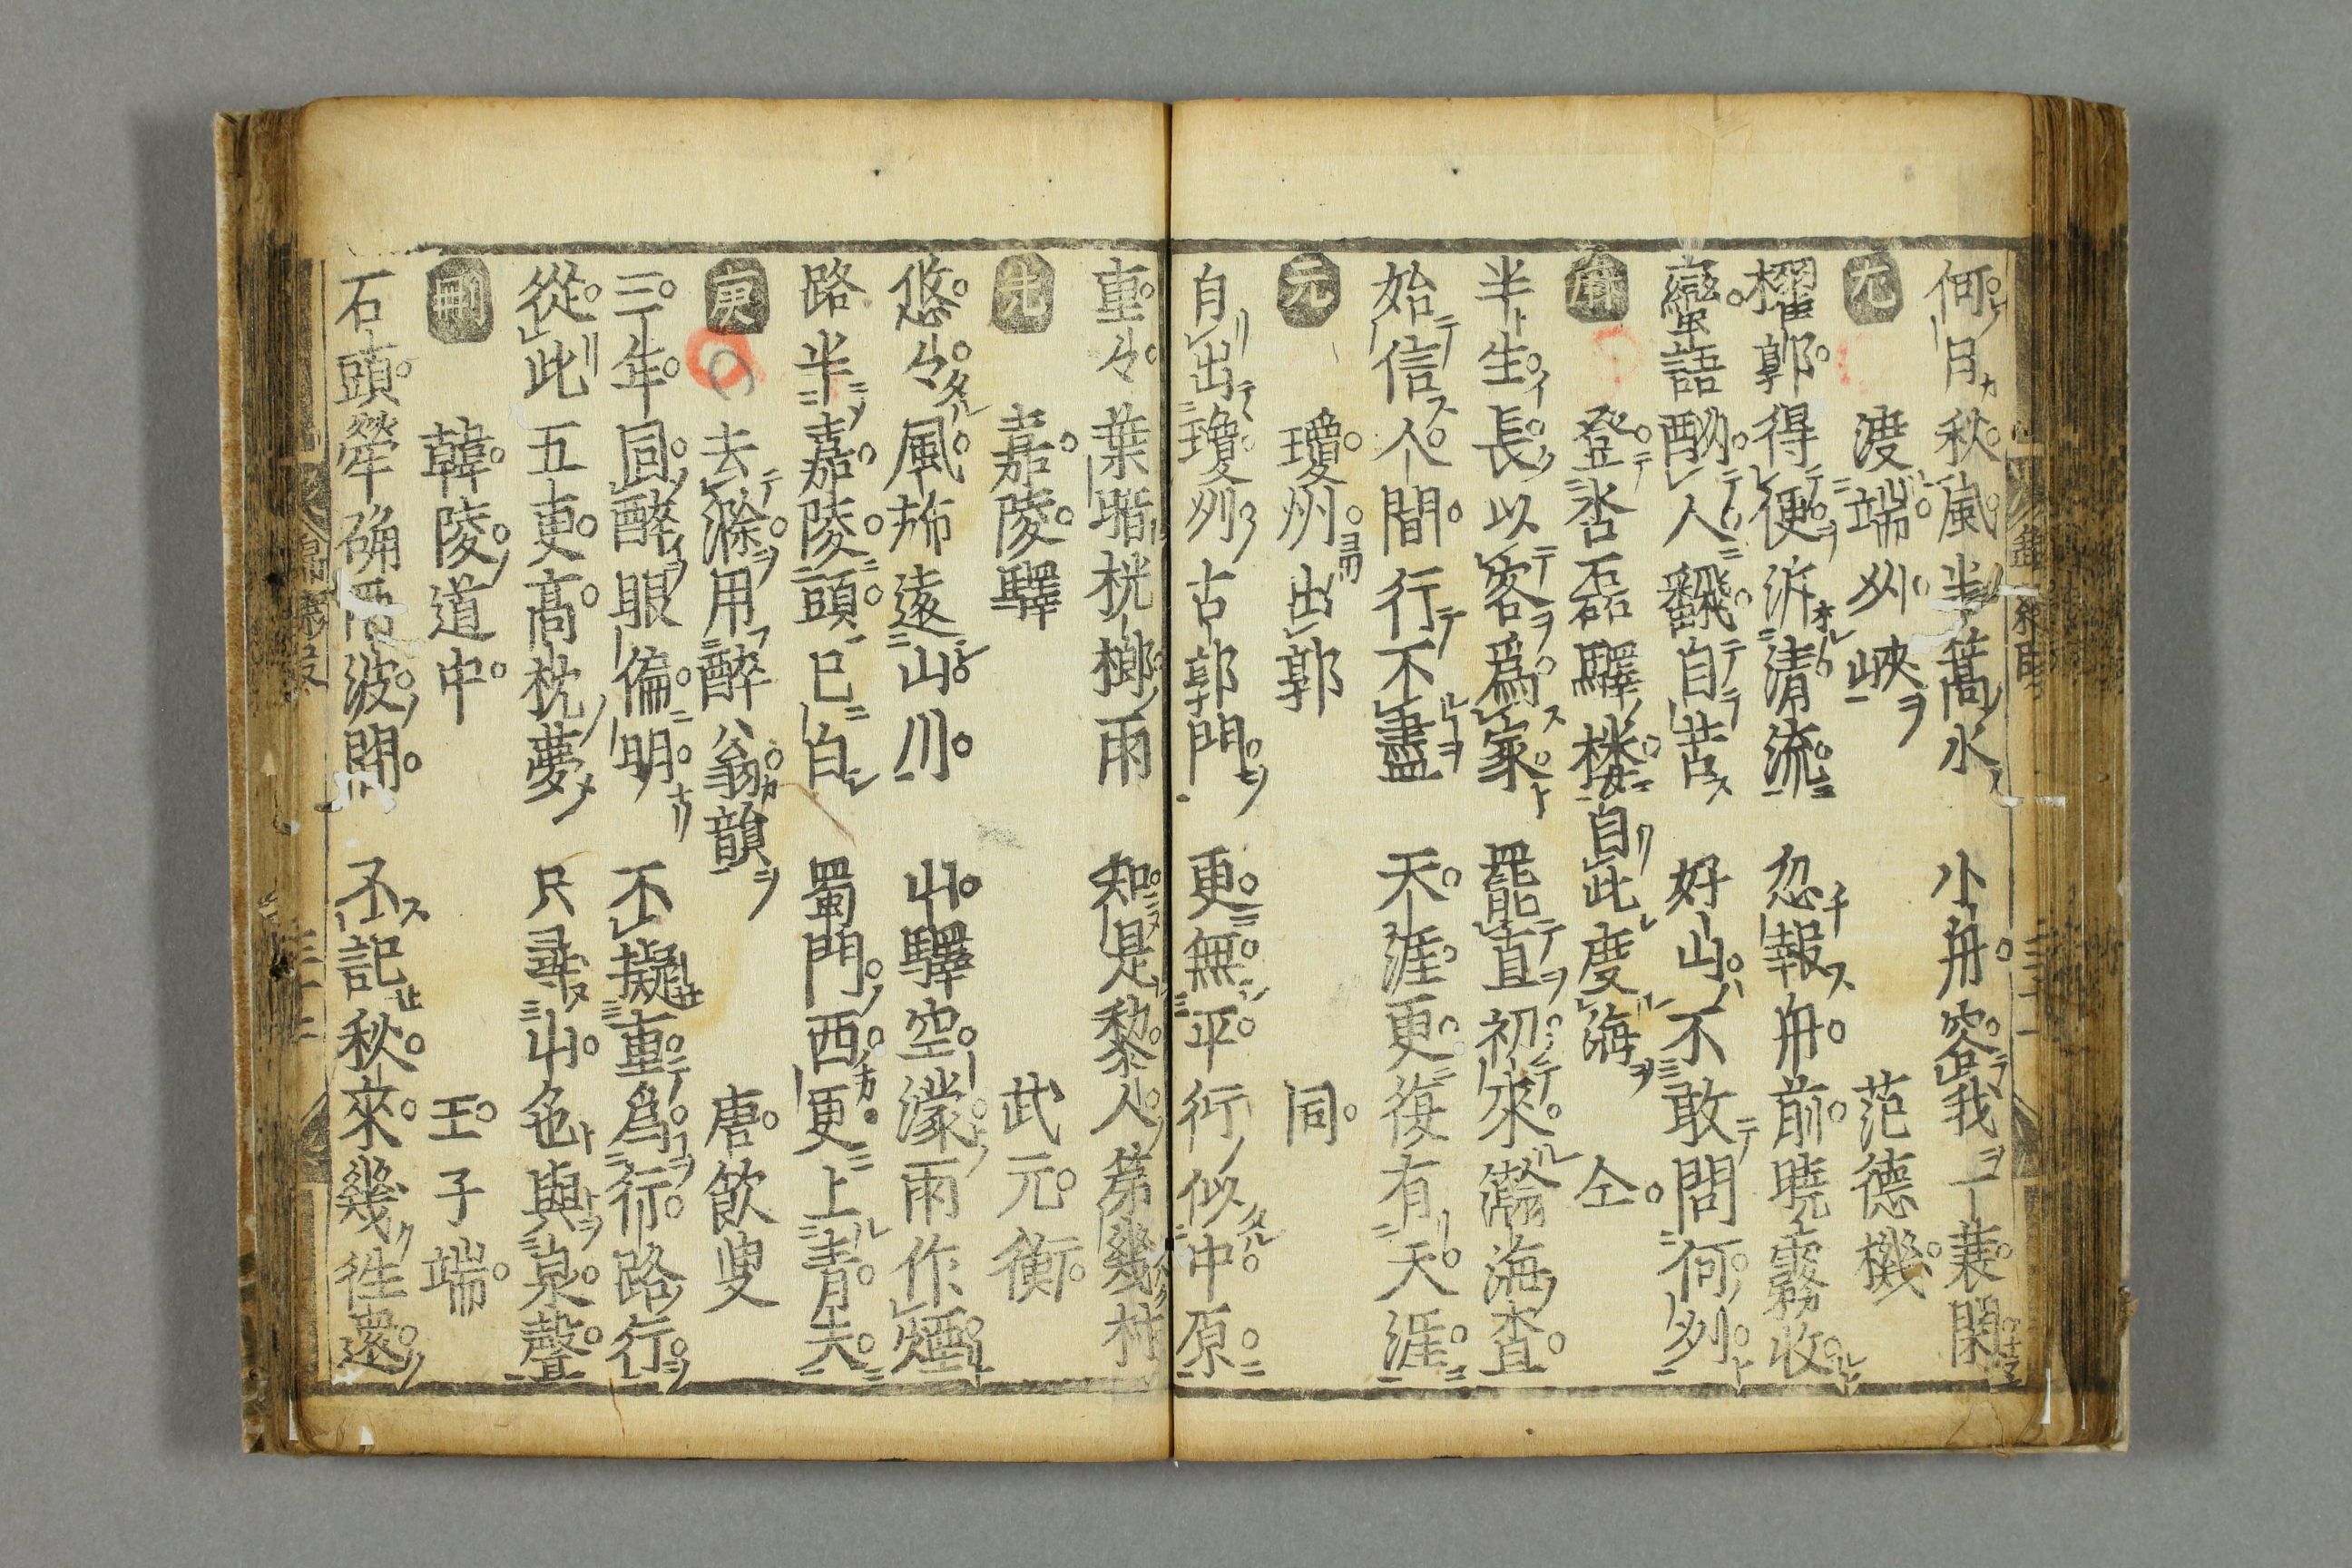 何月秋嵐半篙水 小舟容我一蓑閑
尤 渡端州峽 范德機
櫂郭得便泝清流 忽報舟前曉霧收
蠻語酬人翻自苦 好山不敢問何州
麻 登沓磊驛樓自此度海 仝
半生長以客爲家 罷直初來瀚海査
始信人間行不盡 天涯更復有天涯
元 瓊州出郭 同
自出瓊州古郭門 更無平行似中原
重々葉暗桄榔雨 知是黎人第幾村
先 嘉陵驛 武元衡
悠々風旆遶山川 山驛空濛雨作煙
路半嘉陵頭已白 蜀門西更上青天
庚 去滁用醉翁韻 唐飲叟
三年同醉眼偏明 不擬重爲行路行
從此五更高枕夢 只尋山色與泉聲
刪 韓陵道中 王子端
石頭犖确波間 不記秋來幾往還